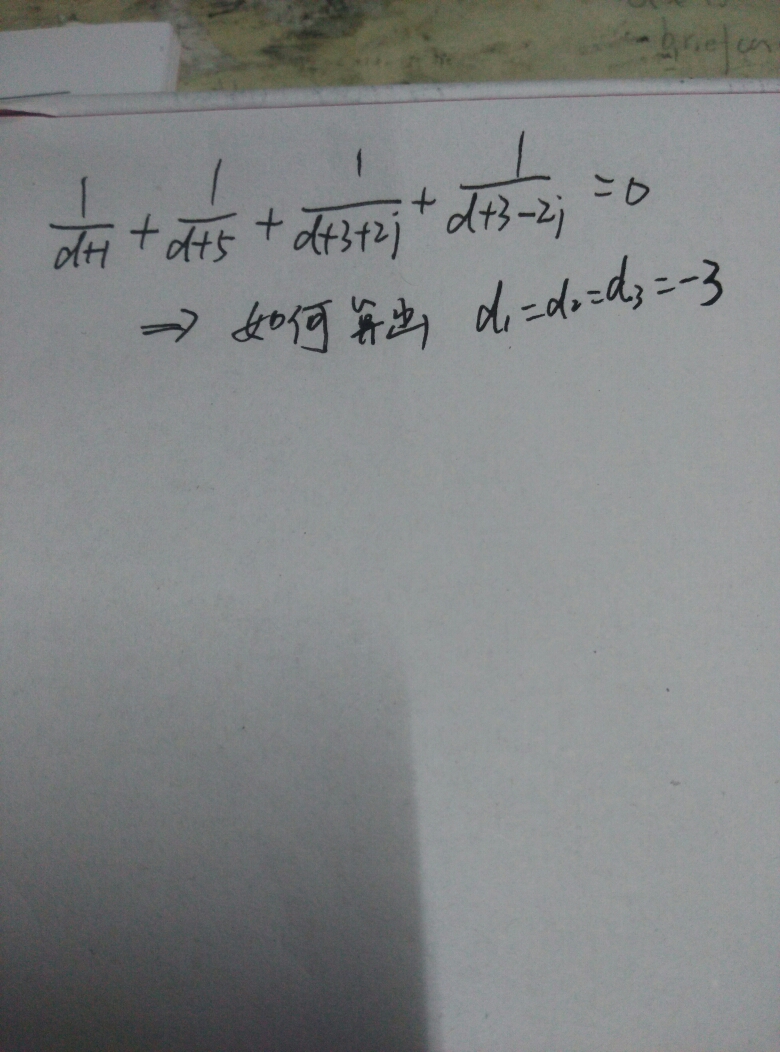 brief
1/(d+1) + 1/(d+5) + 1/(d+3+2j) + 1/(d+3-2j) = 0
⇒ 如何算出 d₁=d₂=d₃=-3